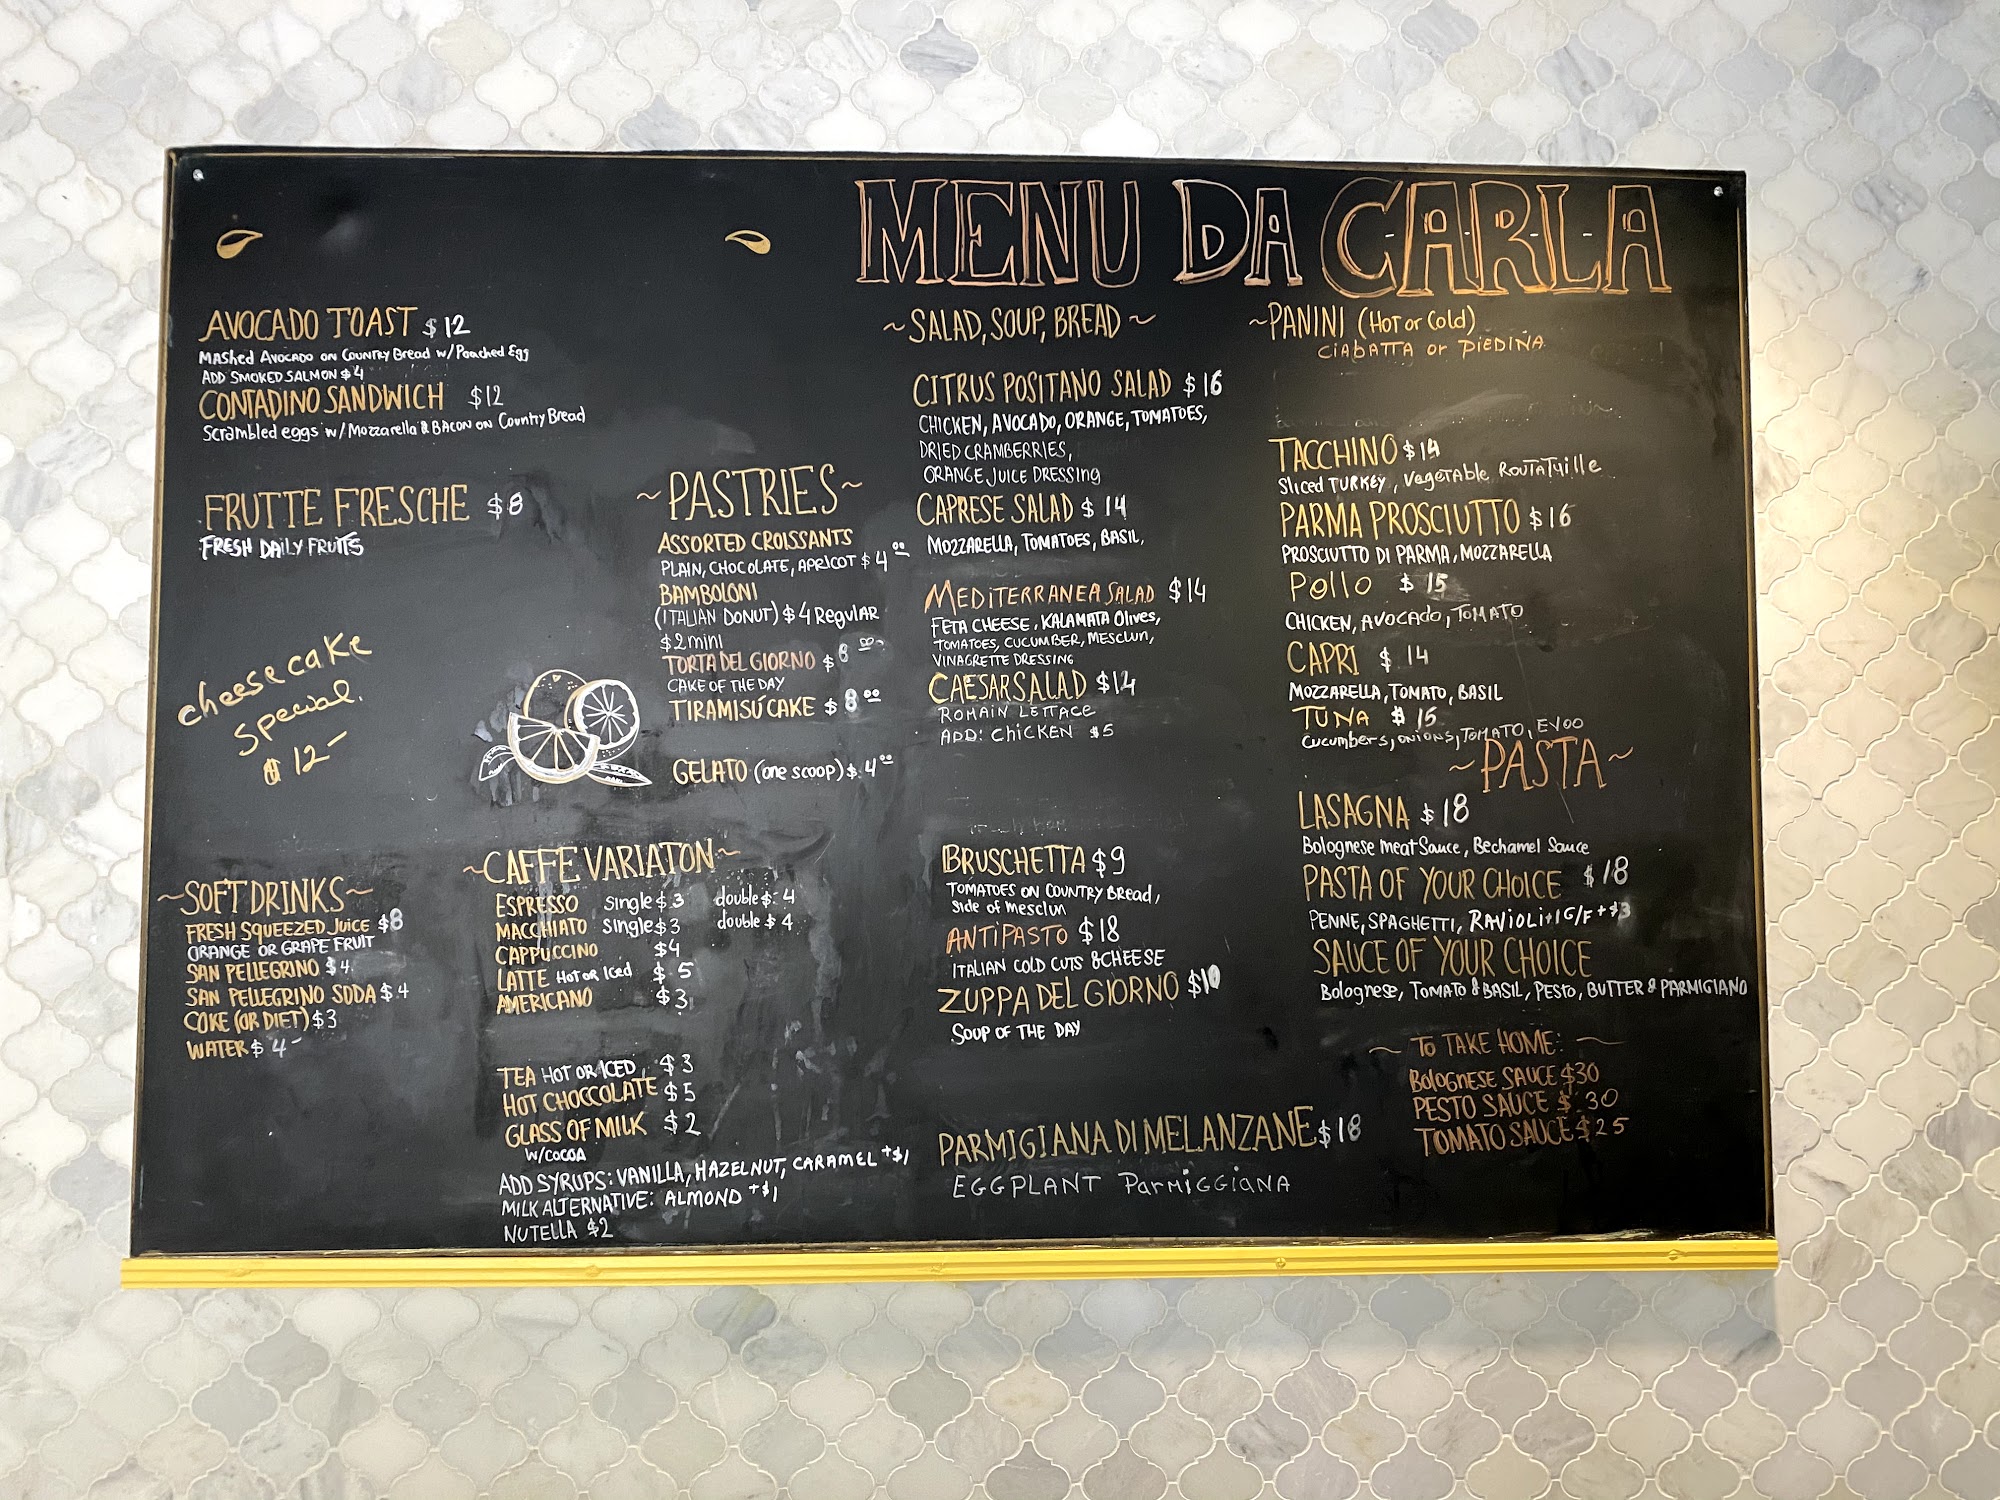 MENU DA C-A-R-L-A
AVOCADO TOAST $12
MASHED AVOCADO ON COUNTRY BREAD W/POACHED EGG
ADD SMOKED SALMON $4
CONTADINO SANDWICH $12
SCRAMBLED EGGS W/MOZZARELLA & BACON ON COUNTRY BREAD
FRUTTE FRESCHE $8
FRESH DAILY FRUITS
cheesecake
special.
$12-
~SOFT DRINKS~
FRESH SQUEEZED JUICE $8
ORANGE OR GRAPE FRUIT
SAN PELLEGRINO $4.
SAN PELLEGRINO SODA $4
COKE (OR DIET) $3
WATER $4-
~PASTRIES~
ASSORTED CROISSANTS
PLAIN, CHOCOLATE, APRICOT $4.00
BAMBOLONI
(ITALIAN DONUT) $4 Regular
$2 mini
TORTA DEL GIORNO $8.00
CAKE OF THE DAY
TIRAMISÚ CAKE $8.00
GELATO (one scoop) $.4.00
~CAFFE VARIATON~
ESPRESSO single $.3 double $.4
MACCHIATO single $3 double $4
CAPPUCCINO $4
LATTE HOT OR Iced $.5
AMERICANO $3
TEA HOT OR ICED, $3
HOT CHOCCOLATE $5
GLASS OF MILK $2
W/COCOA
ADD SYRUPS: VANILLA, HAZELNUT, CARAMEL +$1
MILK ALTERNATIVE: ALMOND +$1
NUTELLA $2
~SALAD, SOUP, BREAD~
CITRUS POSITANO SALAD $16
CHICKEN, AVOCADO, ORANGE, TOMATOES,
DRIED CRAMBERRIES,
ORANGE JUICE DRESSING
CAPRESE SALAD $14
MOZZARELLA, TOMATOES, BASIL,
MEDITERRANEA SALAD $14
FETA CHEESE, KALAMATA Olives,
TOMATOES, CUCUMBER, MESCLUN,
VINAGRETTE DRESSING
CAESAR SALAD $14
ROMAIN LETTACE
ADD: CHICKEN $5
BRUSCHETTA $9
TOMATOES ON COUNTRY BREAD,
SIDE OF MESCLUN
ANTIPASTO $18
ITALIAN COLD CUTS & CHEESE
ZUPPA DEL GIORNO $10
SOUP OF THE DAY
PARMIGIANA DI MELANZANE $18
EGGPLANT PARMIGGIANA
~PANINI (HOT or Cold)
CIABATTA or PIEDINA
TACCHINO $14
Sliced TURKEY, VEGETABLE ROUTATUILLE
PARMA PROSCIUTTO $16
PROSCIUTTO DI PARMA, MOZZARELLA
POLLO $15
CHICKEN, AVOCADO, TOMATO
CAPRI $.14
MOZZARELLA, TOMATO, BASIL
TUNA $15
CUCUMBERS, ONIONS, TOMATO, EVOO
~PASTA~
LASAGNA $18
Bolognese meat Sauce, Bechamel Sauce
PASTA OF YOUR CHOICE $18
PENNE, SPAGHETTI, RAVIOLI+1 G/F +$3
SAUCE OF YOUR CHOICE
Bolognese, TOMATO & BASIL, PESTO, BUTTER & PARMIGIANO
~ TO TAKE HOME: ~
BOLOGNESE SAUCE $30
PESTO SAUCE $.30
TOMATO SAUCE $25